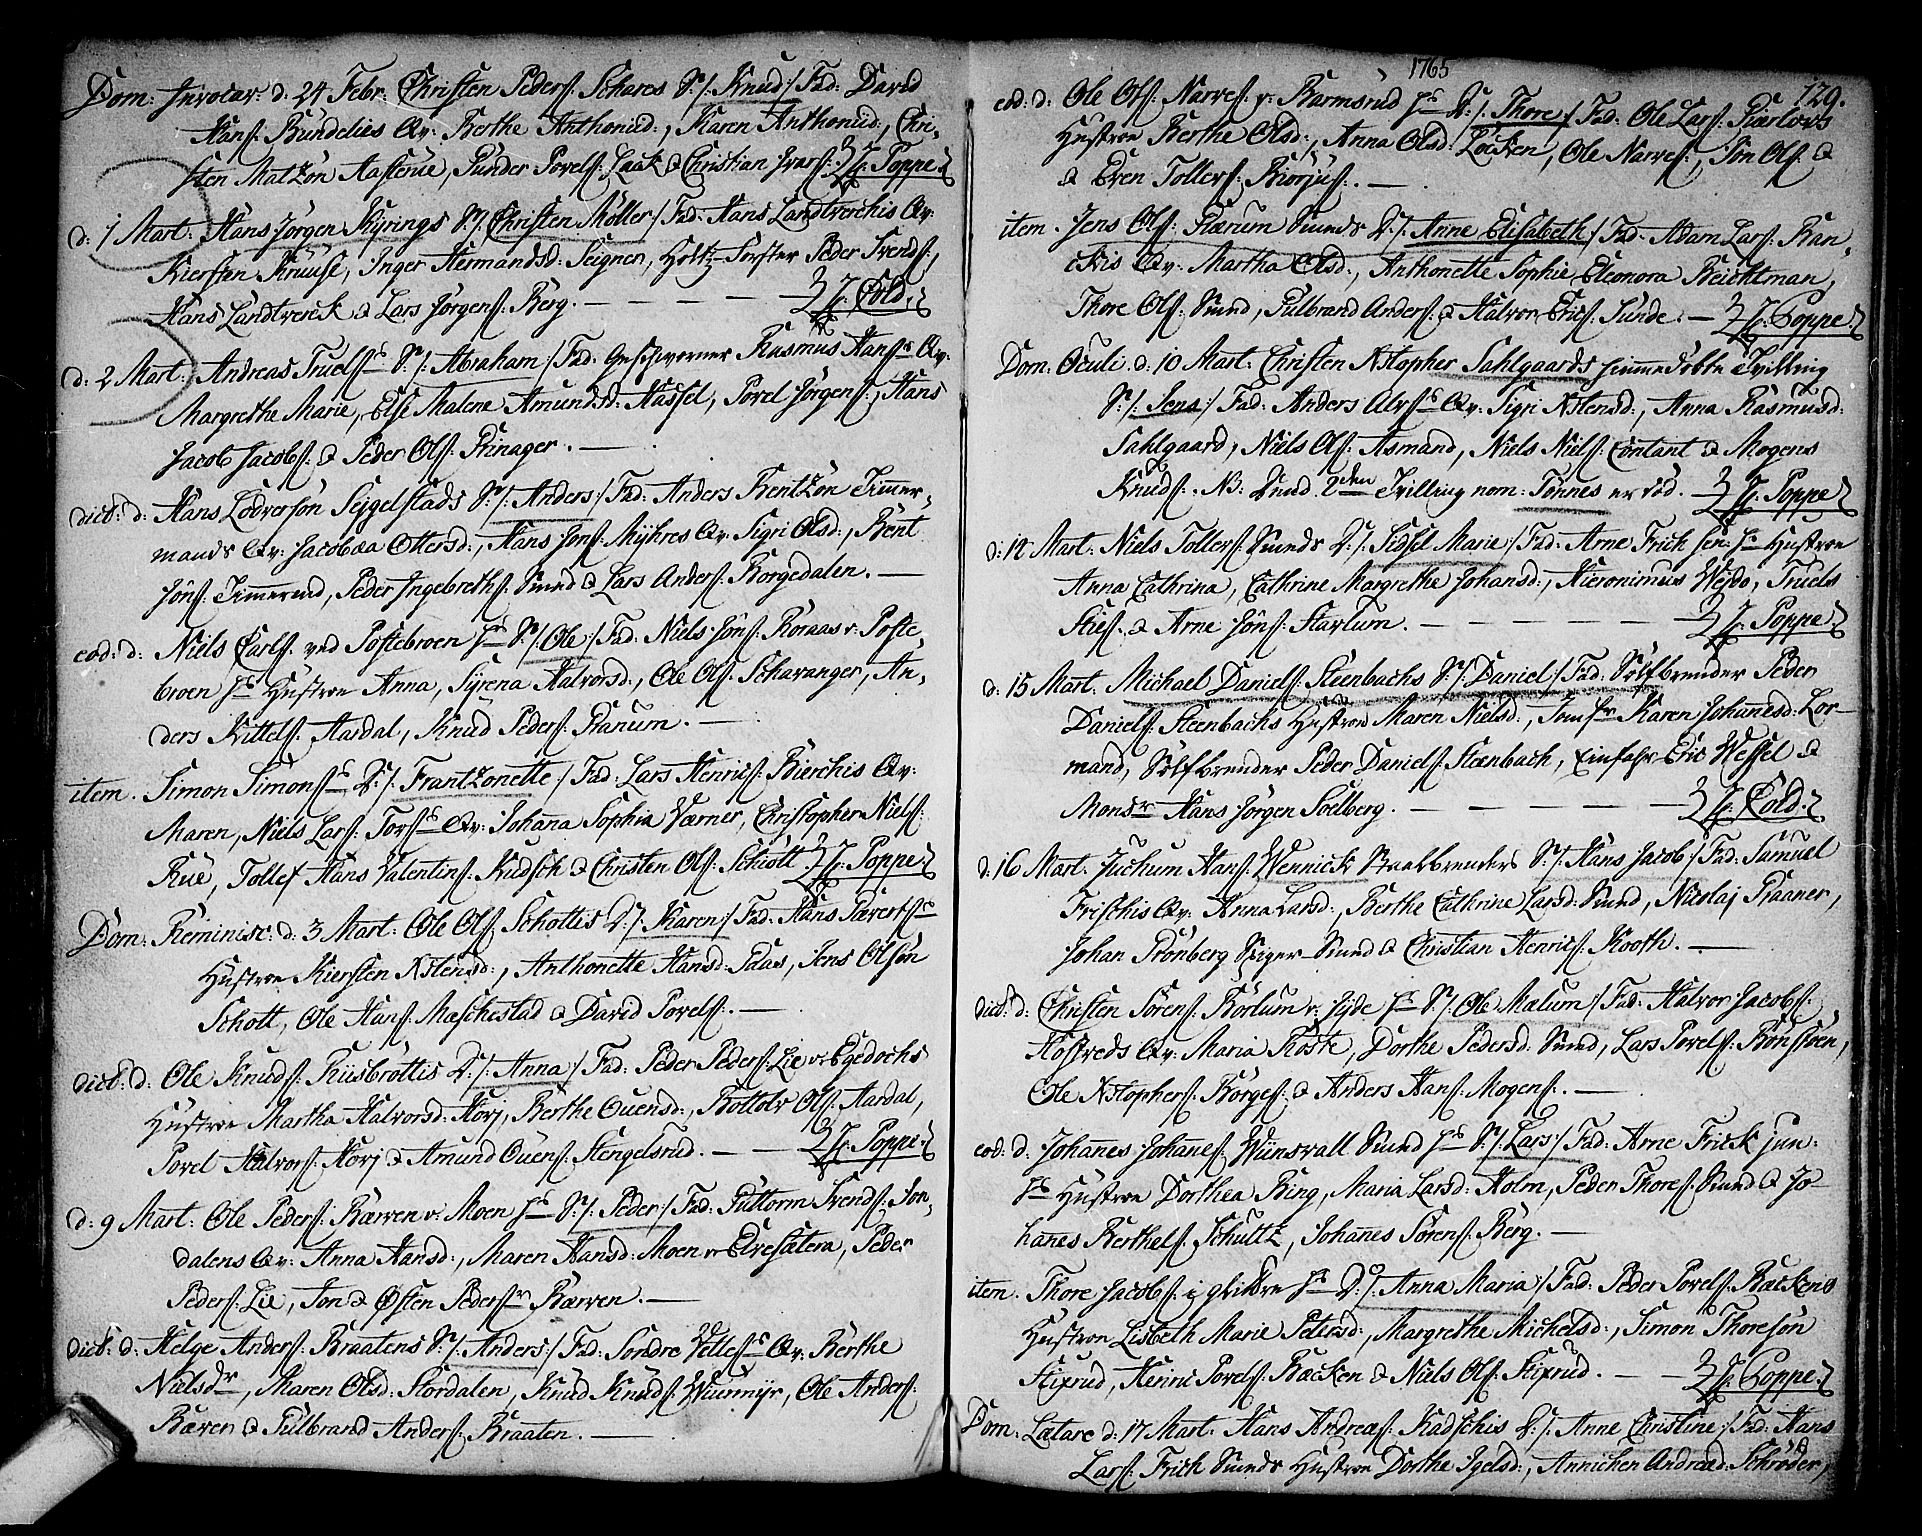 Dom: Invocav: d. 24 Febr. Christen Peders: Schares S:/: Knud :/ Fad: David
Hans: Bundelies Qv: Berthe Anthonud:, Karen Anthonud:, Chri-
sten Matzon Aastenie, Gunder Povels: Laak & Christian Ivars: H: Poppe
d: 1 Mart: Hans Jørgen Kyrings S:/: Christen Møller :/ Fad: Hans Landtverchis Qv:
Kiersten Kruuse, Inger Hermandsd: Seigner, Holtz-Førster Peder Svends:,
Hans Landtverck & Lars Jørgens: Berg. — — — — H: Cold.
d: 2 Mart: Andreas Truels: S:/: Abraham :/ Fad: Geschworner Rasmus Hans: Qv:
Margrethe Marie, Else Malene Amundsd: Hassel, Povel Jørgens:, Hans
Jacob Jacobs: & Peder Ols: Prinager. —
dict: d: Hans Lodversøn Sejgelstads S:/: Anders :/ Fad: Anders Bentzon Timer-
mands Qv: Jacobæa Ottersd:, Hans Jons: Myhres Qv: Sigri Olsd:, Bent
Jøns: Timerud, Peder Ingebreths: Smed & Lars Anders: Borgedalen. —
eod: d: Niels Carls: ved Postebroen S:/: Ole :/ Fad: Niels Jøns: Roraas v: Poste-
broen Hustroe Anna, Syrena Halvorsd:, Ole Ols: Schavanger, An-
ders Kittels: Aardal, Knud Peders: Ranum. —
item. Simon Simons: D:/: Frantzonette :/ Fad: Lars Henrics: Bierchis Qv:
Maren, Niels Lars: Tors: Qv: Johanna Sophia Værner, Christopher Niels:
Rue, Tollef Hans Valentins: Kudsch & Christen Ols: Schiott. H: Poppe
Dom: Reminisc: d: 3 Mart: Ole Ols: Schottis D:/: Karen :/ Fad: Hans Pæverts:
Hustroe Kiersten Nstensd:, Anthonette Hansd: Paas, Jens Olsøn
Schott, Ole Hans: Mæschestad & David Povels: —
dict: d: Ole Knuds: Rusbrøttis D:/: Anna :/ Fad: Peder Peders: Lie v: Egedochs
Hustroe Martha Halvorsd: Korj, Berthe Ouensd:, Bottolv Ols: Aardal,
Povel Halvors: Korj & Amund Ouens: Stengelsrud. — — H: Poppe
d: 9 Mart: Ole Peders: Bærven v: Moen S:/: Peder :/ Fad: Guttorm Svends: Jon-
dalens Qv: Anna Hansd:, Maren Hansd: Moen v: Elvesætera, Peder
Peders: Lie, Jon & Østen Peders: Bærven. —
dict: d: Helge Anders: Braatens S:/: Anders :/ Fad: Sondre Velles: Qv: Berthe
Nielsd:, Maren Olsd: Stordalen, Knud Knuds: Wumyr, Ole Anders:
Bærven & Gulbrand Anders: Braaten. —
1765
129.
eod: d: Ole Ols: Narves: v: Barmsrud D:/: Thore :/ Fad: Ole Lars:
Hustroe Berthe Olsd:, Anna Olsd: Løcken, Ole Narves:, Jon Ols: &
& Even Tollers: —
item. Jens Ols: Skærum Smeds D:/: Anne Elisabeth :/ Fad: Adam Lars: Ran-
ckis Qv: Martha Olsd:, Anthonette Sophie Eleonora Beichtman,
Thore Ols: Smed, Gulbrand Anders: & Halvor Erics: Sunde. — H: Poppe
Dom: Oculi. d: 10 Mart. Christen Nstopher Sahlgaards hiemmedøbte Tvilling
S:/: Jens :/ Fad: Anders Alvs: Qv: Sigri Nstensd:, Anna Rasmusd:
Sahlgaard, Niels Ols: Asmand, Niels Niels: Contant & Mogens
Knuds:. NB: 2den Tvilling nom: Tønnes er død. — H: Poppe
d: 12 Mart. Niels Tollers: Smeds D:/: Sidsel Marie :/ Fad: Arne Frick sen: Hustroe
Anna Cathrina, Cathrine Margrethe Johansd:, Hieronimus Wejdo, Truels
Sties: & Arne Jøns: Skartum. — — — — H: Poppe
d: 15 Mart. Michael Daniels: Steenbachs S:/: Daniel :/ Fad: Sølfbrender Peder
Daniels: Steenbachs Hustroe Maren Nielsd:, Jomfr Karen Johannesd: Lor-
mand, Sølfbrender Peder Daniels: Steenbach, Einfahr Eric Wessel &
Monsr Hans Jørgen Soelberg. — — — — H: Cold.
d: 16 Mart. Juchum Hans: Wennick Staalbrenders S:/: Hans Jacob :/ Fad: Samuel
Frischis Qv: Anna Larsd:, Berthe Cathrine Larsd: Smed, Nicolaj Praaner,
Johan Prønberg Spiger-Smed & Christian Henrics: Kooth. —
dict: d: Christen Sørens: Børlum v: Jyde S:/: Ole Mælum :/ Fad: Halvor Jacobs:
Hosfreds Qv: Maria Røste, Dorthe Pedersd: Smed, Lars Povels: Rønstøen,
Ole Nstophers: Børges: & Anders Hans: Mogens: —
eod: d: Johannes Johannes: Wunsvall Smed S:/: Lars :/ Fad: Arne Frick jun:
Hustroe Dorthea Bing, Maria Larsd: Holm, Peder Thores: Smed & Jo-
hannes Berthels: Schultz, Johannes Sørens: Berg. —
item. Thore Jacobs: i D:/: Anna Maria :/ Fad: Peder Povels: Backens
Hustroe Lisbeth Marie Petersd:, Margrethe Michelsd:, Simon Thoresøn
Stixrud, Henric Povels: Backen & Niels Ols: Stixrud. — — H: Poppe
Dom: Lætare d: 17 Mart. Hans Andreas: Kadschis D:/: Anne Christine :/ Fad: Hans
Lars: Frick Smeds Hustroe Dorthe Igelsd:, Annichen Andread: Schrøder,